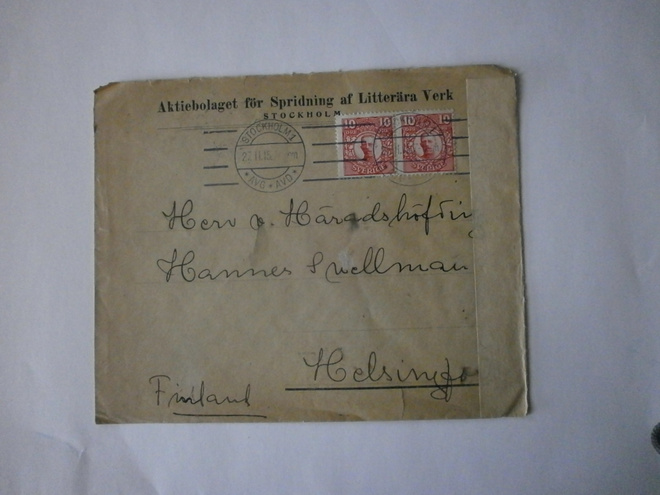 Aktiebolaget för Spridning af Litterära Verk
STOCKHOLM
10 10 10 10
STOCKHOLM 1
27.11.15
AVG ★ AVD
SVERIGE SVERIGE
Herr v. Häradshöfdin
Hannes Snellman
Helsingfo
Finland